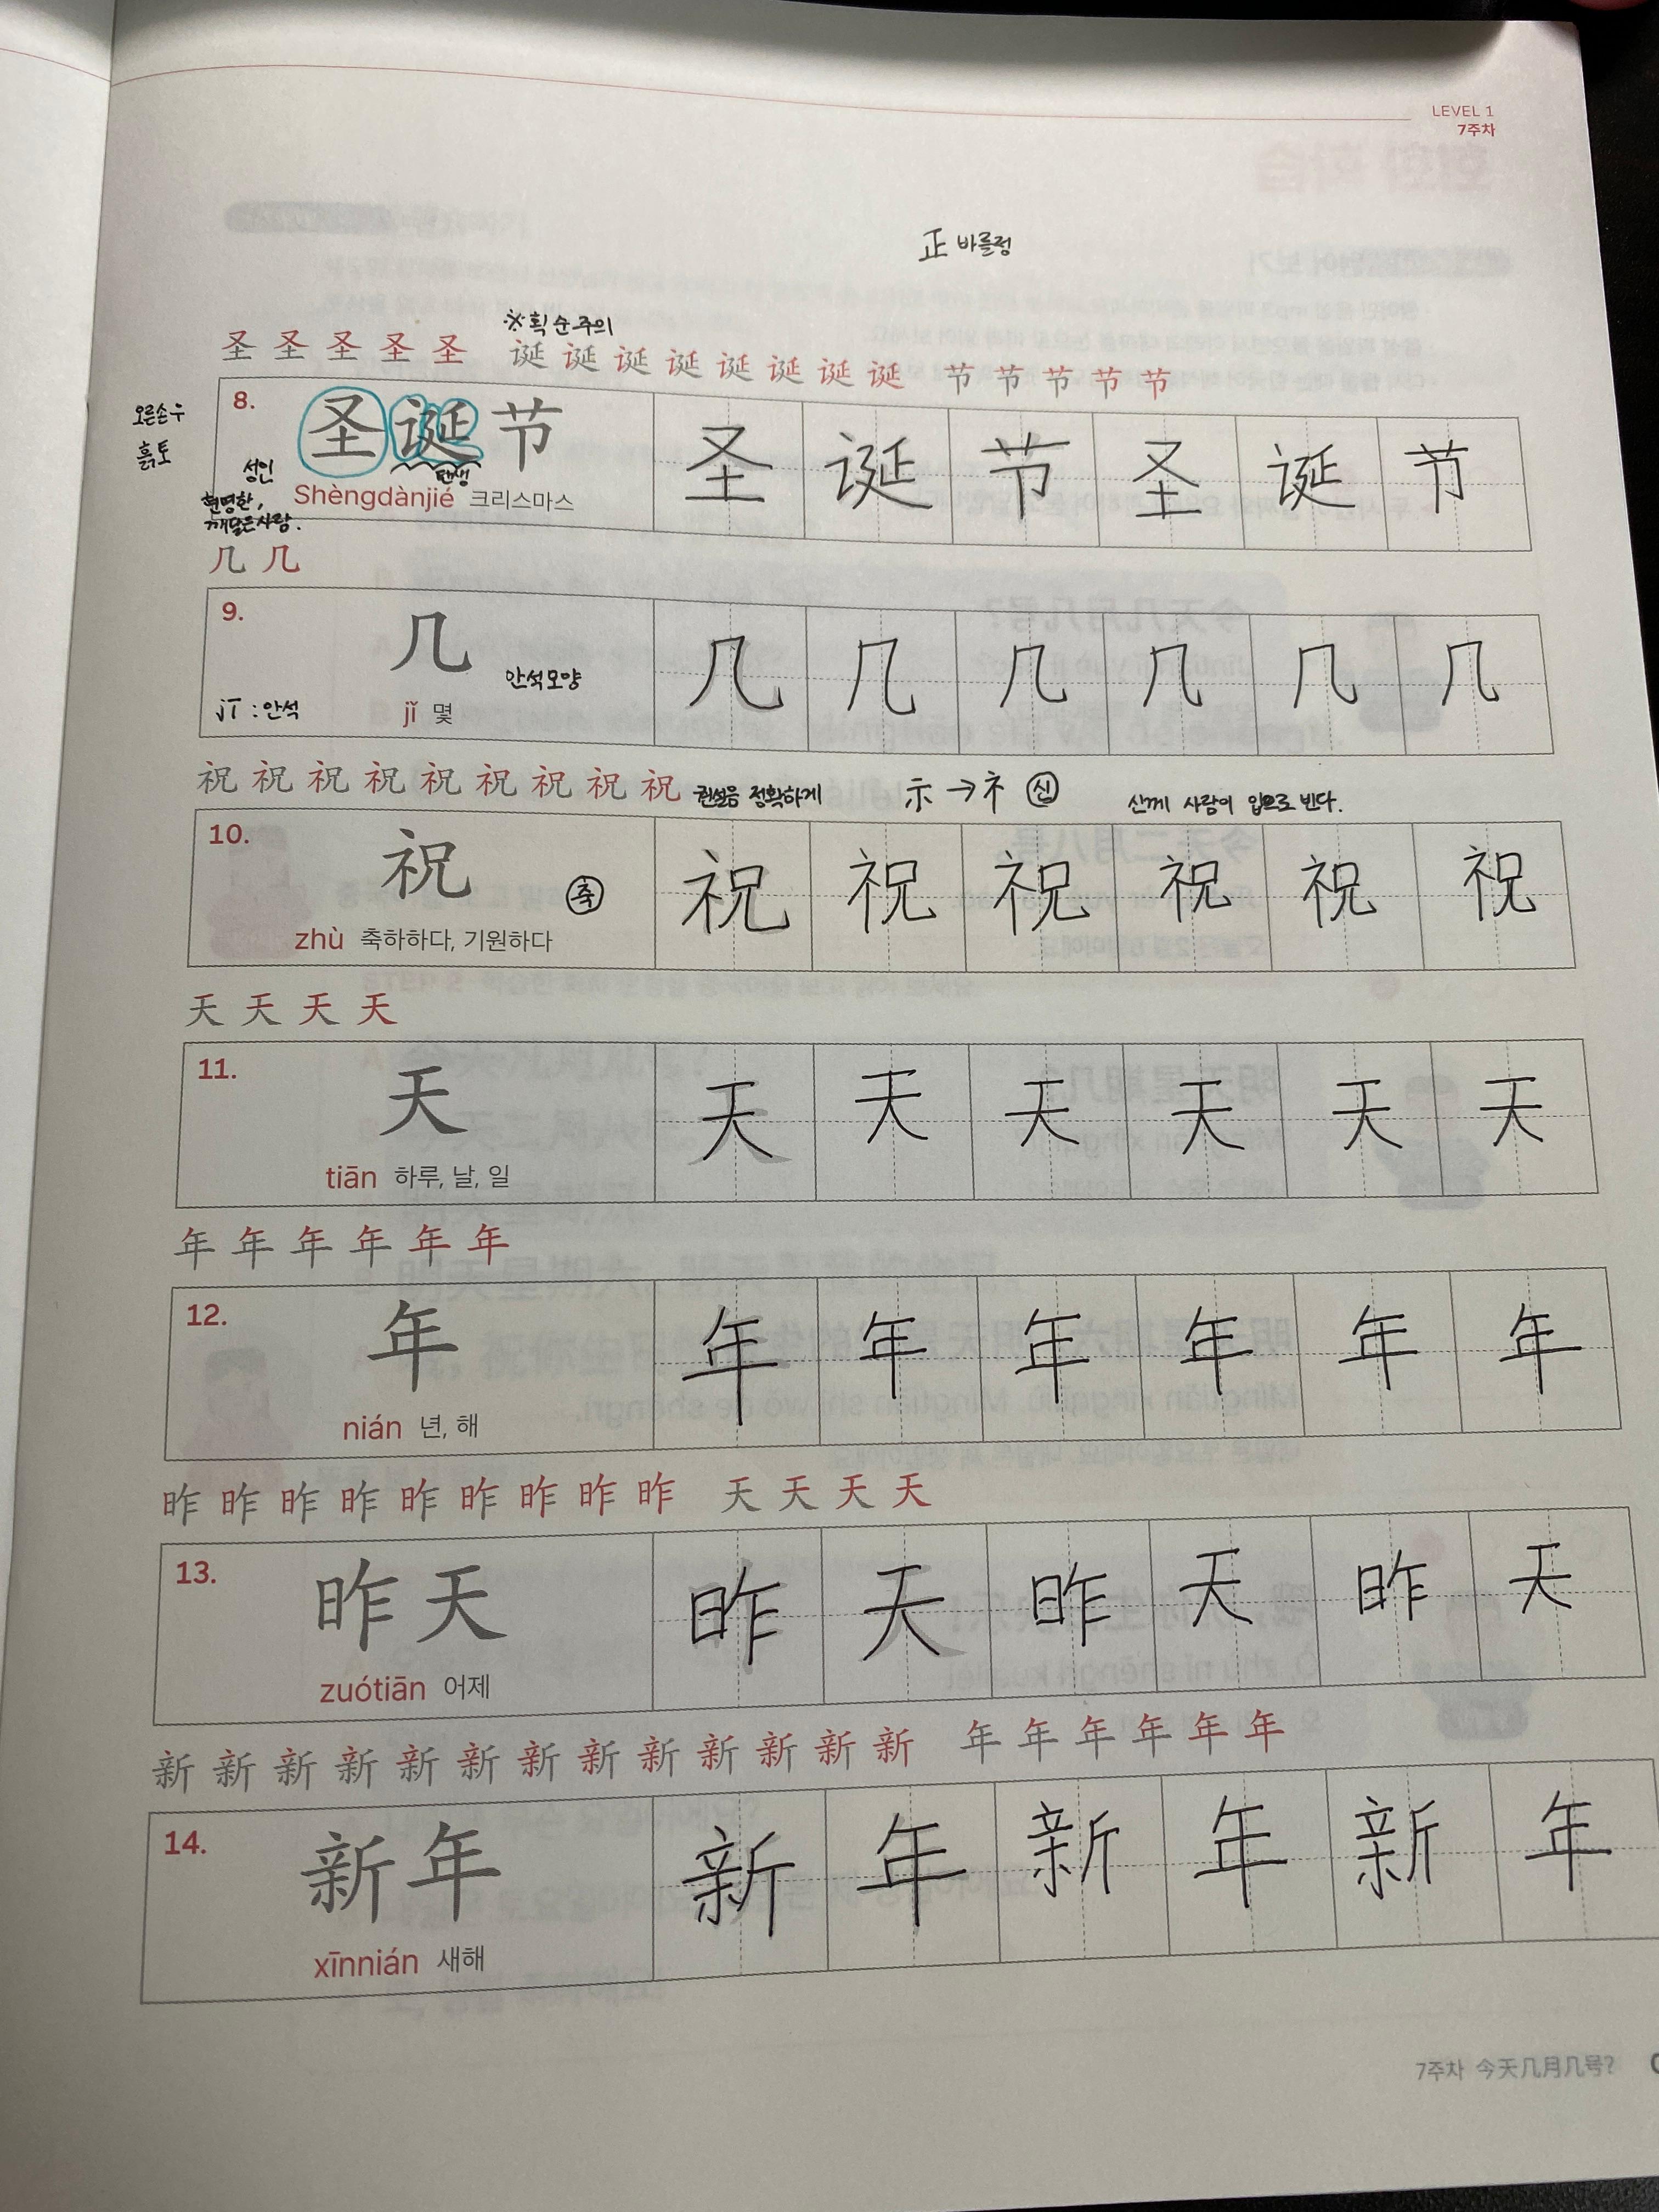 LEVEL 1
7주차
正 바를정
※획순주의
圣 圣 圣 圣 圣 诞 诞 诞 诞 诞 诞 诞 诞 节 节 节 节 节
오른손 우
흙토
8. 圣诞节
성인
탄생
현명한,
깨달은사람.
Shèngdànjié 크리스마스
圣 诞 节 圣 诞 节
几 几
9. 几
안석모양
jī : 안석
jǐ 몇
几 几 几 几 几 几
祝 祝 祝 祝 祝 祝 祝 祝 祝 권설음 정확하게 示 → 礻 신께 사람이 입으로 빈다.
10. 祝
축
zhù 축하하다, 기원하다
祝 祝 祝 祝 祝 祝
天 天 天 天
11. 天
tiān 하루, 날, 일
天 天 天 天 天 天
年 年 年 年 年 年
12. 年
nián 년, 해
年 年 年 年 年 年
昨 昨 昨 昨 昨 昨 昨 昨 昨 天 天 天 天
13. 昨天
zuótiān 어제
昨 天 昨 天 昨 天
新 新 新 新 新 新 新 新 新 新 新 新 新 年 年 年 年 年 年
14. 新年
xīnnián 새해
新 年 新 年 新 年
7주차 今天几月几号?